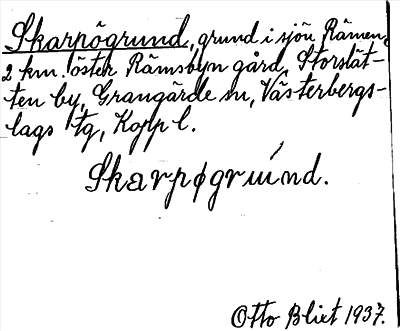 Skarpögrund, grund i sjön Rämen,
2 km. öster Rämsbyn gård, Storslät-
ten by, Grangärde sn, Västerbergs-
lags tg, Kopp l.
Skarpøgruńnd.
Otto Blixt 1937.